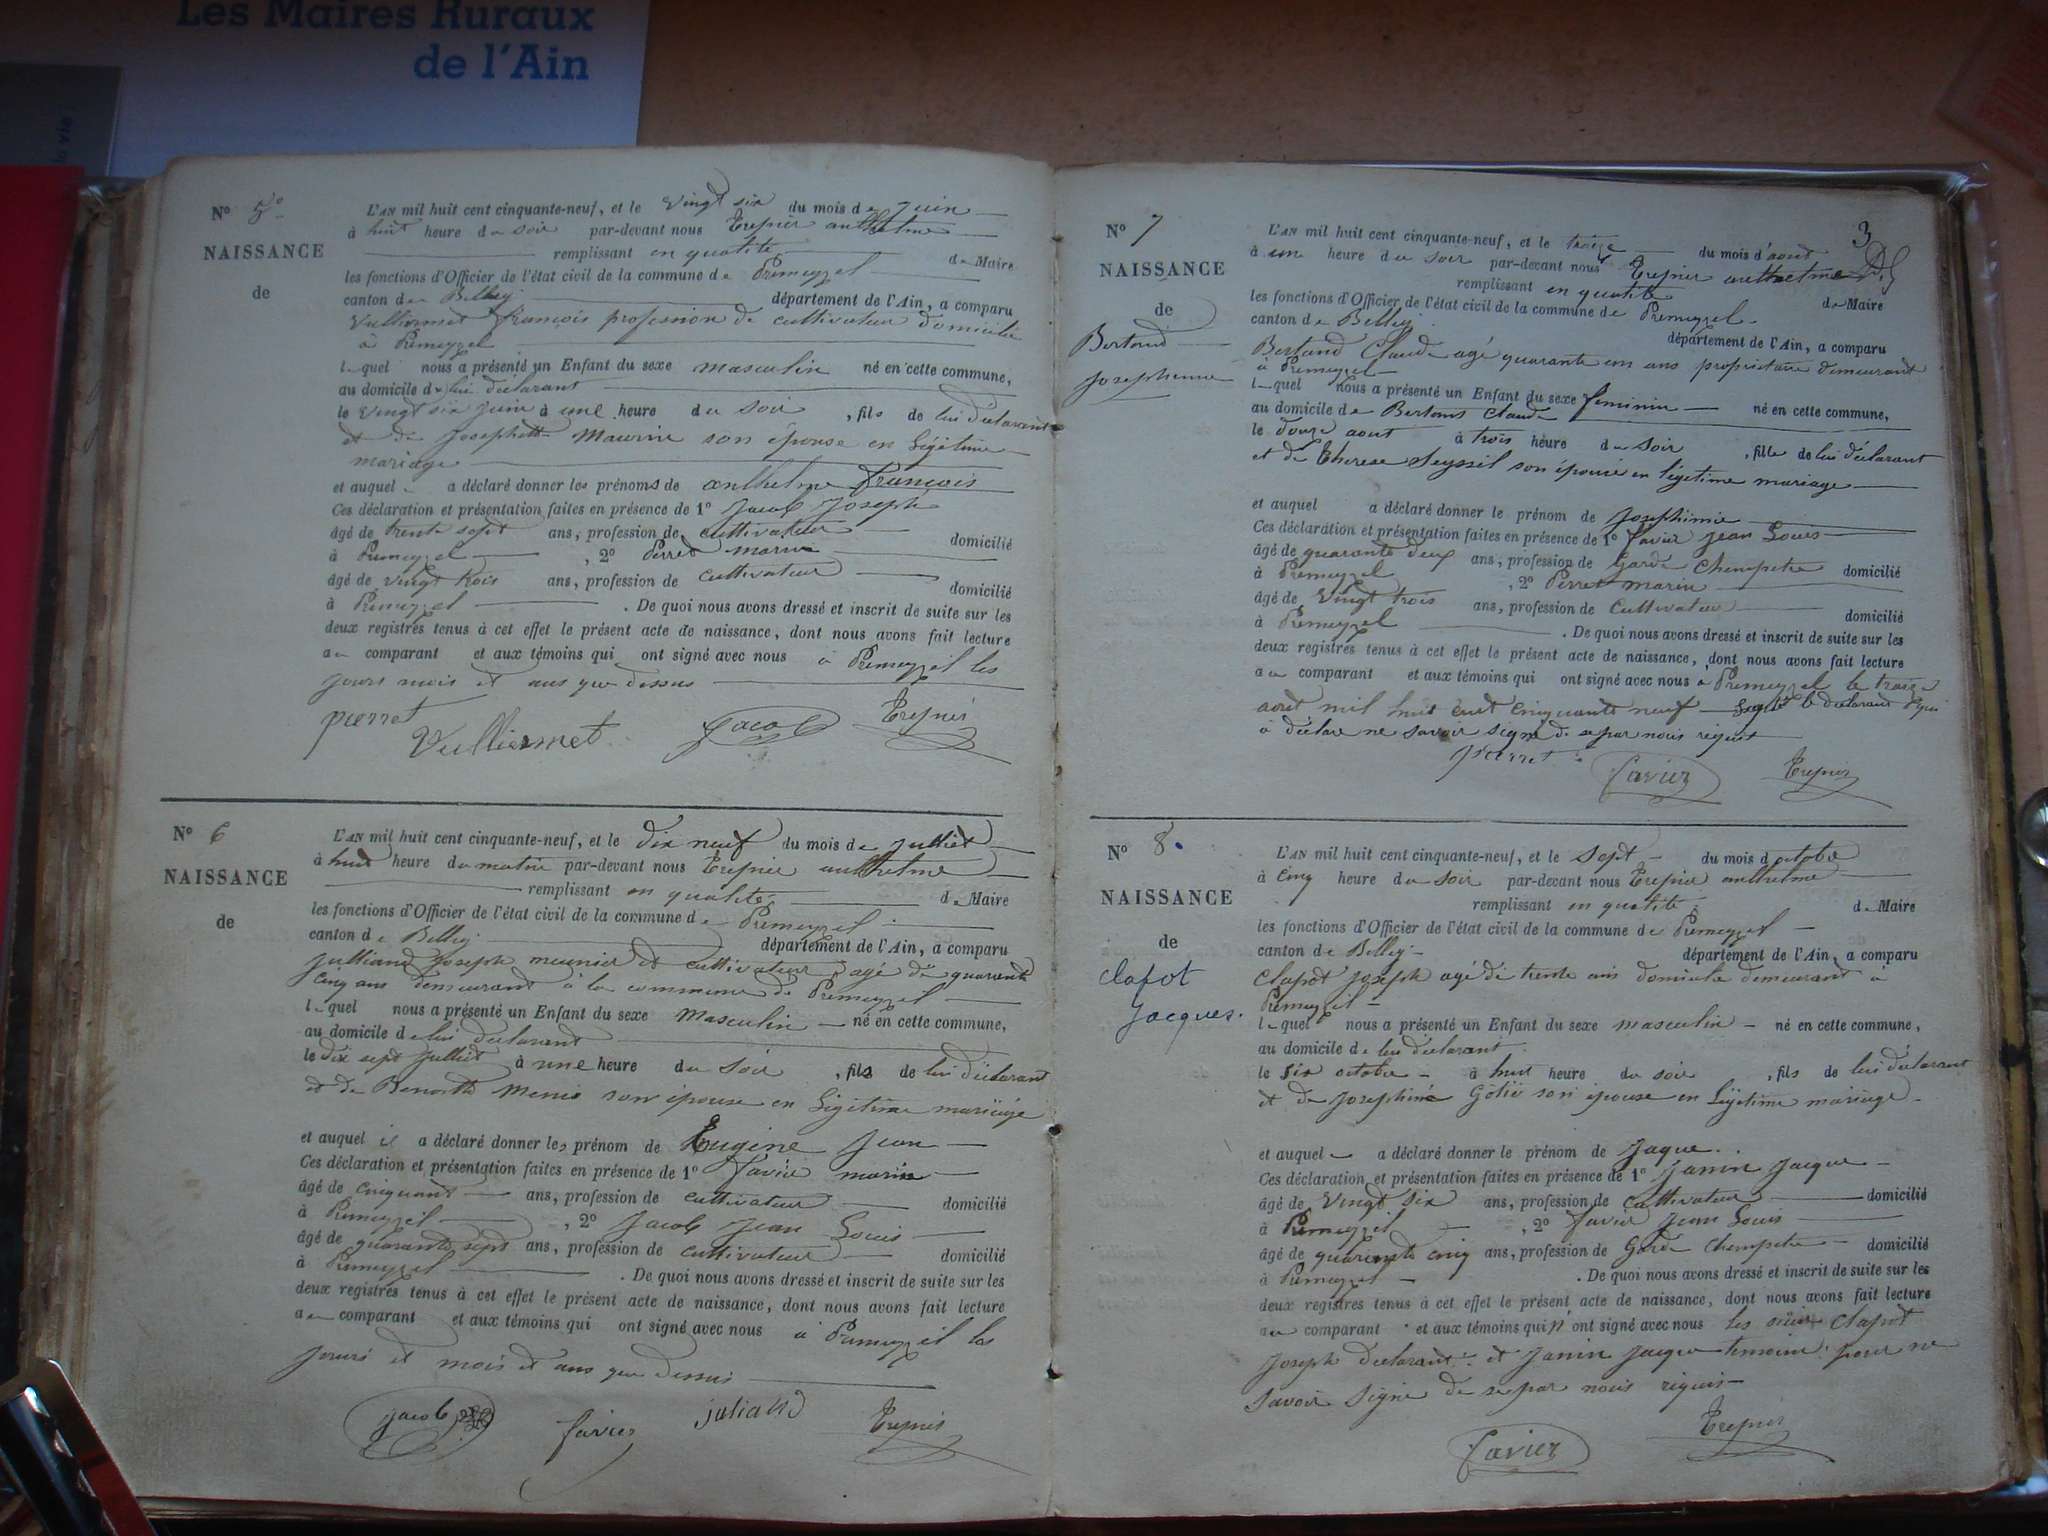 Les Maires Ruraux
de l'Ain
N° 5
NAISSANCE
de
L'AN mil huit cent cinquante-neuf, et le vingt six du mois de juin
à huit heure du soir par-devant nous Trepier anthelme
remplissant en qualité de Maire
les fonctions d'Officier de l'état civil de la commune de Prémeyzel
canton de Belley département de l'Ain, a comparu
Vulliermet francois profession de cultivateur domicilié
à Prémeyzel
lequel nous a présenté un Enfant du sexe masculin né en cette commune,
au domicile de lui déclarant
le vingt six juin à une heure du soir, fils de lui déclarant
et de Josephette Maurin son épouse en légitime
mariage
et auquel a déclaré donner les prénoms de anthelme francois
Ces déclaration et présentation faites en présence de 1° Jacob Joseph
âgé de trente sept ans, profession de cultivateur domicilié
à Prémeyzel, 2° Perret marin
âgé de vingt trois ans, profession de cultivateur domicilié
à Prémeyzel. De quoi nous avons dressé et inscrit de suite sur les
deux registres tenus à cet effet le présent acte de naissance, dont nous avons fait lecture
au comparant et aux témoins qui ont signé avec nous à Prémeyzel les
jours mois et ans que dessus
pierret
Vulliermet Jacob Trepier
N° 6
NAISSANCE
de
L'AN mil huit cent cinquante-neuf, et le dix neuf du mois de julliet
à huit heure du matin par-devant nous Trepier anthelme
remplissant en qualité de Maire
les fonctions d'Officier de l'état civil de la commune de Prémeyzel
canton de Belley département de l'Ain, a comparu
Julliand Joseph meunier et cultivateur agé de quarante
cinq ans demeurant à la commune de Prémeyzel
lequel nous a présenté un Enfant du sexe masculin né en cette commune,
au domicile de lui déclarant
le dix sept julliet à une heure du soir, fils de lui déclarant
et de Benoitte son épouse en légitime mariage
et auquel il a déclaré donner les prénom de Eugine Jean
Ces déclaration et présentation faites en présence de 1° favier marin
âgé de cinquant ans, profession de cultivateur domicilié
à Prémeyzel, 2° Jacob Jean Louis
âgé de quarante sept ans, profession de cultivateur domicilié
à Prémeyzel. De quoi nous avons dressé et inscrit de suite sur les
deux registres tenus à cet effet le présent acte de naissance, dont nous avons fait lecture
au comparant et aux témoins qui ont signé avec nous à Prémeyzel les
jours et mois et ans que dessus
jacob favier Trepier
3
N° 7
NAISSANCE
de
Bertand
Josephinne
L'AN mil huit cent cinquante-neuf, et le traize du mois d'aout
à une heure du soir par-devant nous Trepier anthelme
remplissant en qualité de Maire
les fonctions d'Officier de l'état civil de la commune de Prémeyzel
canton de Belley département de l'Ain, a comparu
Bertand Claude agé quarante ans propriétaire demeurant
à Prémeyzel
lequel nous a présenté un Enfant du sexe féminin né en cette commune,
au domicile de Claude
le douze aout à trois heure du soir, fille de lui déclarant
et de Therese Seyssel son épouse en légitime mariage
et auquel a déclaré donner le prénom de Josephinne
Ces déclaration et présentation faites en présence de 1° favier jean Louis
âgé de quarante deux ans, profession de Garde Chempetre domicilié
à Prémeyzel, 2° Perret marin
âgé de vingt trois ans, profession de cultivateur domicilié
à Prémeyzel. De quoi nous avons dressé et inscrit de suite sur les
deux registres tenus à cet effet le présent acte de naissance, dont nous avons fait lecture
au comparant et aux témoins qui ont signé avec nous à Prémeyzel le traize
aout mil huit cent cinquante neuf le déclarant qui
à déclaré ne savoir signé de separ nous riquit
pierret favier Trepier
N° 8.
NAISSANCE
de
Clapot
Jacques.
L'AN mil huit cent cinquante-neuf, et le sept du mois d'octobre
à cinq heure du soir par-devant nous Trepier anthelme
remplissant en qualité de Maire
les fonctions d'Officier de l'état civil de la commune de Prémeyzel
canton de Belley département de l'Ain, a comparu
Clapot Joseph agé de trente ans demeurant à
Prémeyzel
lequel nous a présenté un Enfant du sexe masculin né en cette commune,
au domicile de lui déclarant
le six octobre à huit heure du soir, fils de lui déclarant
et de Josephine son épouse en légitime mariage
et auquel a déclaré donner le prénom de Jaque.
Ces déclaration et présentation faites en présence de 1° Janin Jacque
âgé de vingt six ans, profession de cultivateur domicilié
à Prémeyzel, 2° favier Jean Louis
âgé de quarante cinq ans, profession de Garde Chempetre domicilié
à Prémeyzel. De quoi nous avons dressé et inscrit de suite sur les
deux registres tenus à cet effet le présent acte de naissance, dont nous avons fait lecture
au comparant et aux témoins qui ont signé avec nous les Clapot
Joseph déclarant et Janin Jacque temoins pour ne
savoir signé de separ nous riquis
favier Trepier